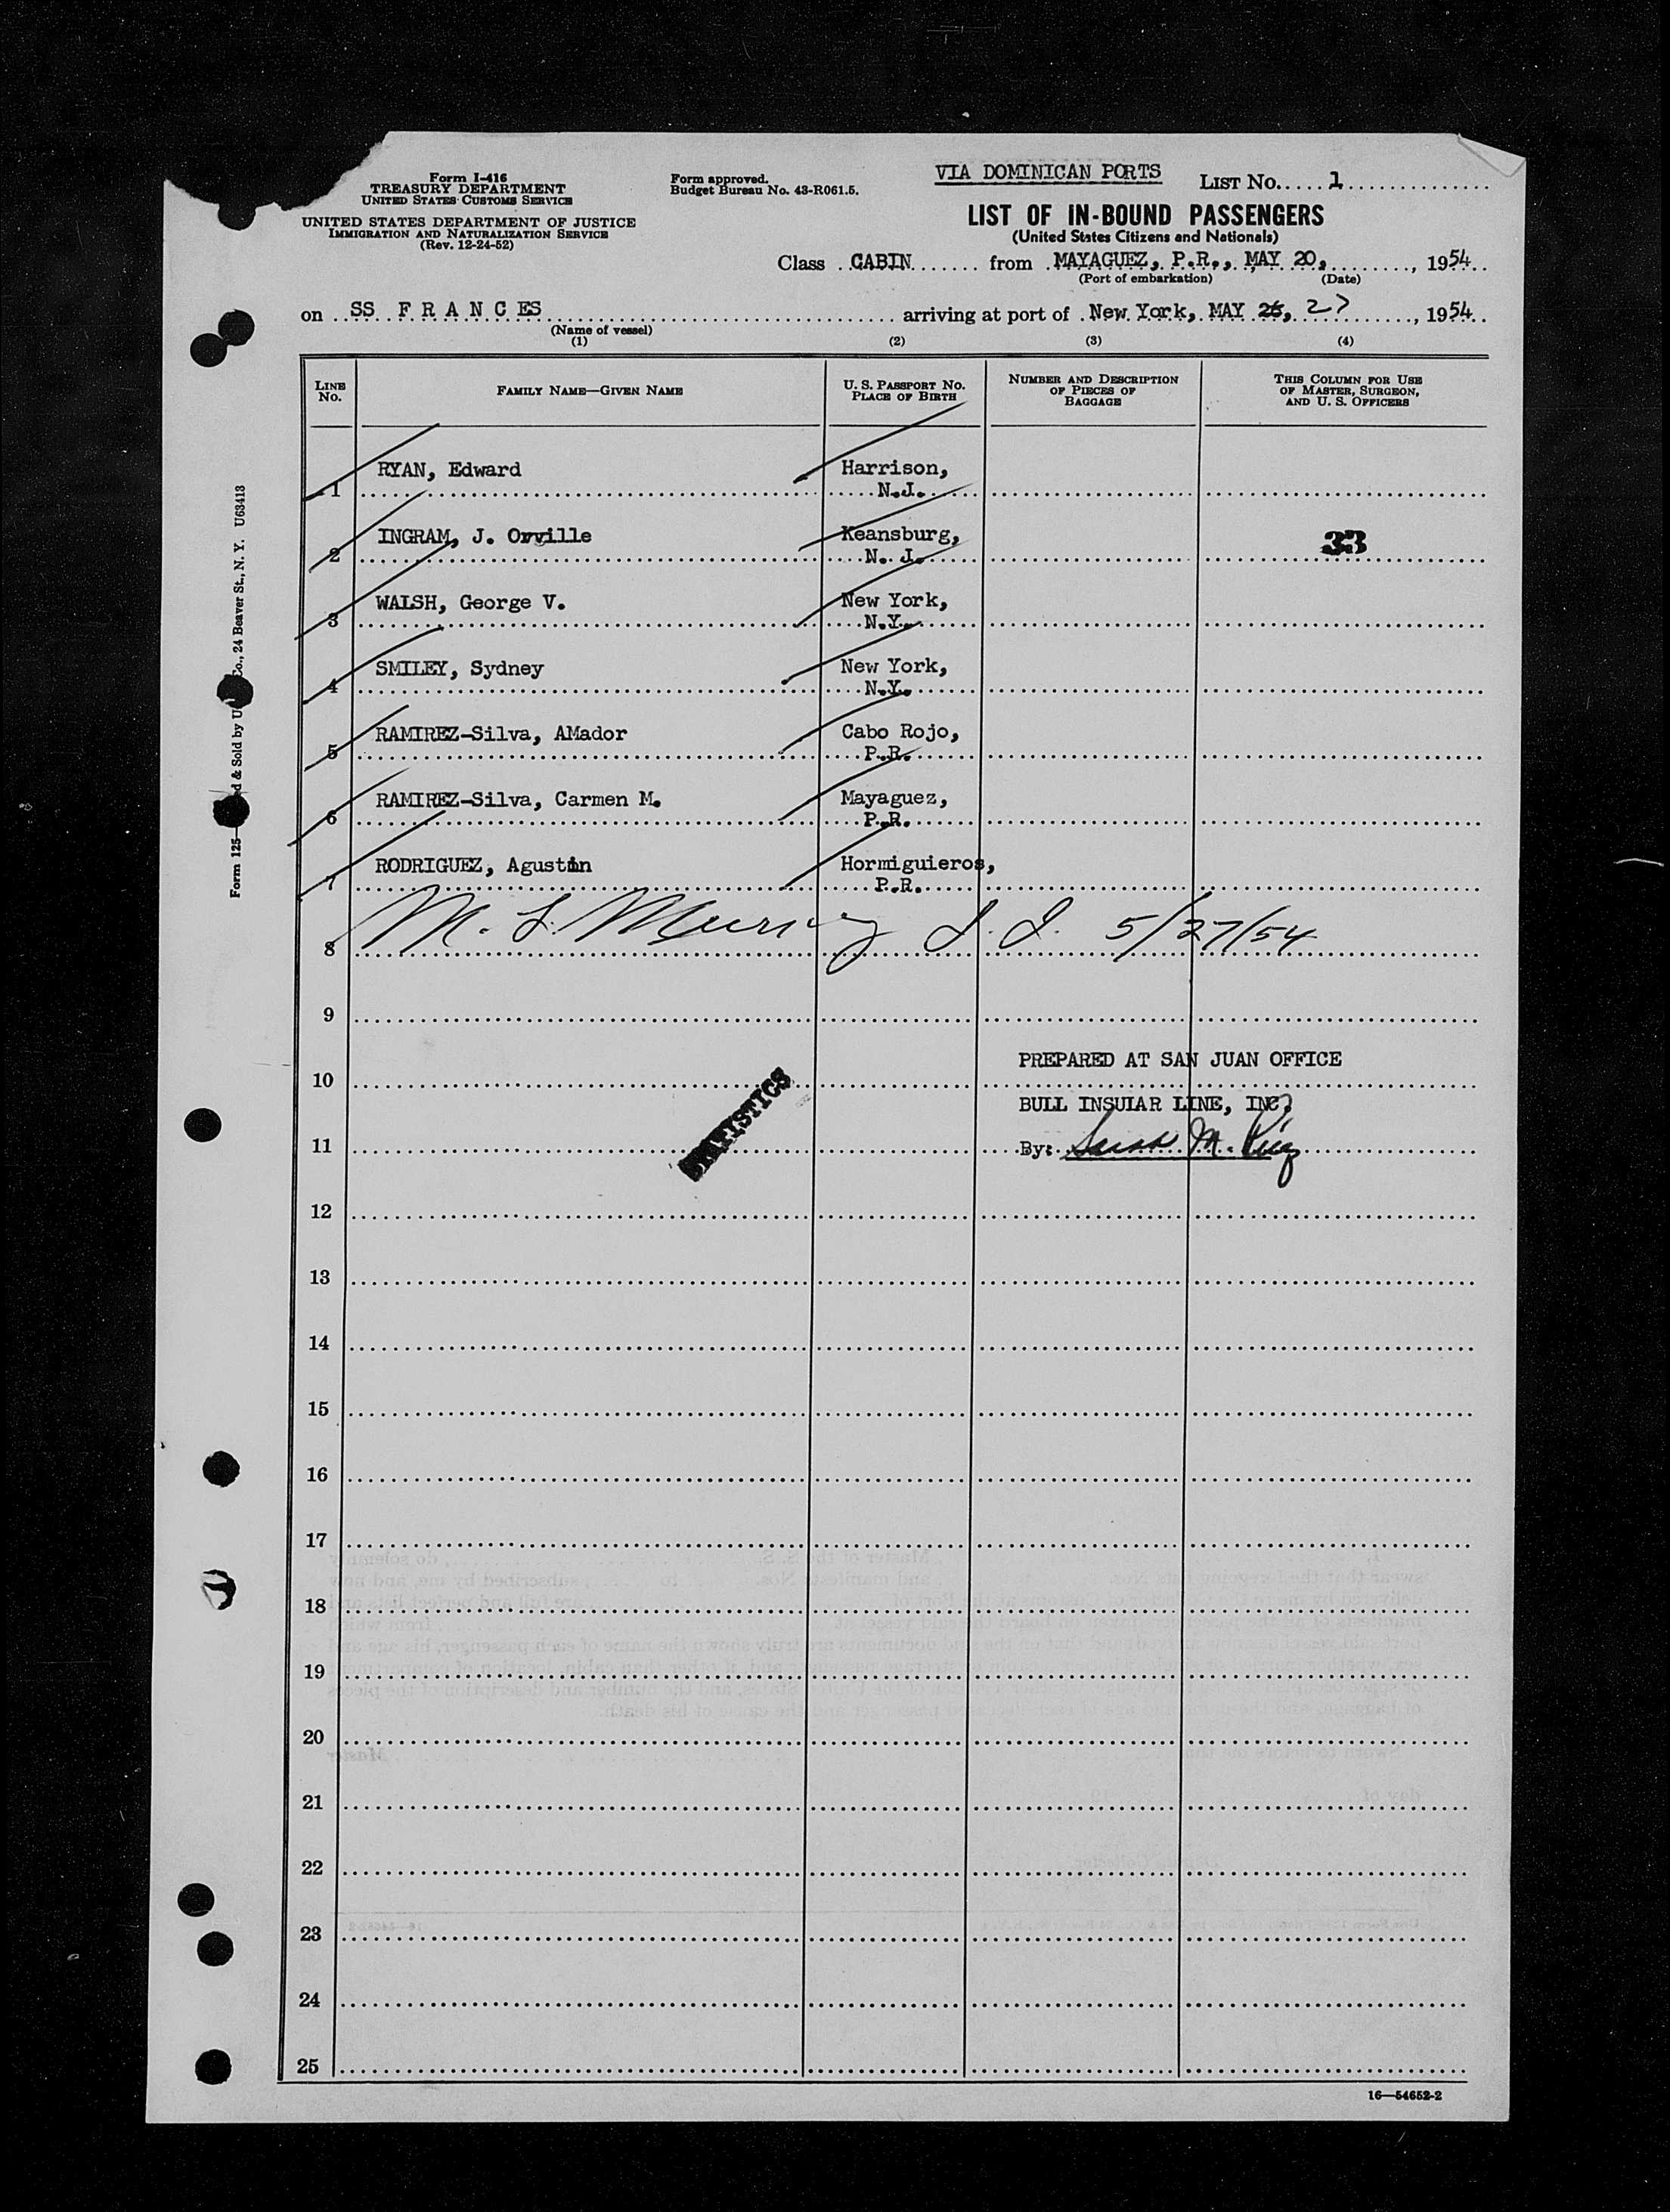 Form I-416
TREASURY DEPARTMENT
UNITED STATES CUSTOMS SERVICE
UNITED STATES DEPARTMENT OF JUSTICE
IMMIGRATION AND NATURALIZATION SERVICE
(Rev. 12-24-52)
Form approved.
Budget Bureau No. 43-R061.5.
VIA DOMINICAN PORTS
LIST NO. 1
LIST OF IN-BOUND PASSENGERS
(United States Citizens and Nationals)
Class CABIN from MAYAGUEZ, P.R., MAY 20, , 1954
(Port of embarkation) (Date)
on SS F R A N C ES arriving at port of New York, MAY 26, 27, 1954
(Name of vessel)
(1) (2) (3) (4)
LINE NO. FAMILY NAME—GIVEN NAME U. S. PASSPORT NO. PLACE OF BIRTH NUMBER AND DESCRIPTION OF PIECES OF BAGGAGE THIS COLUMN FOR USE OF MASTER, SURGEON, AND U. S. OFFICERS
1 RYAN, Edward Harrison, N.J.
2 INGRAM, J. Orville Keansburg, N. J. 33
3 WALSH, George V. New York, N.Y.
4 SMILEY, Sydney New York, N.Y.
5 RAMIREZ-Silva, AMador Cabo Rojo, P.R.
6 RAMIREZ-Silva, Carmen M. Mayaguez, P.R.
7 RODRIGUEZ, Agustin Hormiguieros, P.R.
8 M. L. Murray I. I. 5/27/54
9
PREPARED AT SAN JUAN OFFICE
10
BULL INSULAR LINE, INC.
11 By: M.
STATISTICS
12
13
14
15
16
17
18
19
20
21
22
23
24
25
16—54652-2
Form 125— d & Sold by U Co., 24 Beaver St., N. Y. U63413